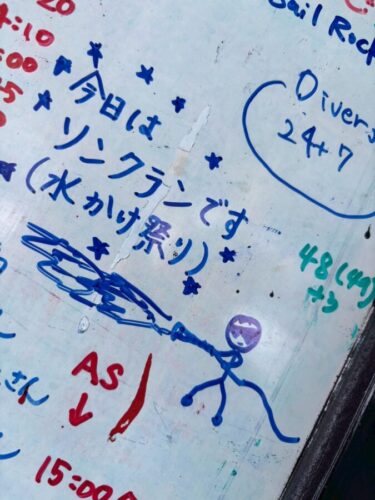 20
:10
:00
5
0
Sail Rock
今日は
ソンクランです
(水かけ祭り)
Divers
24+7
48(49)
AS
↓
さん
15:00